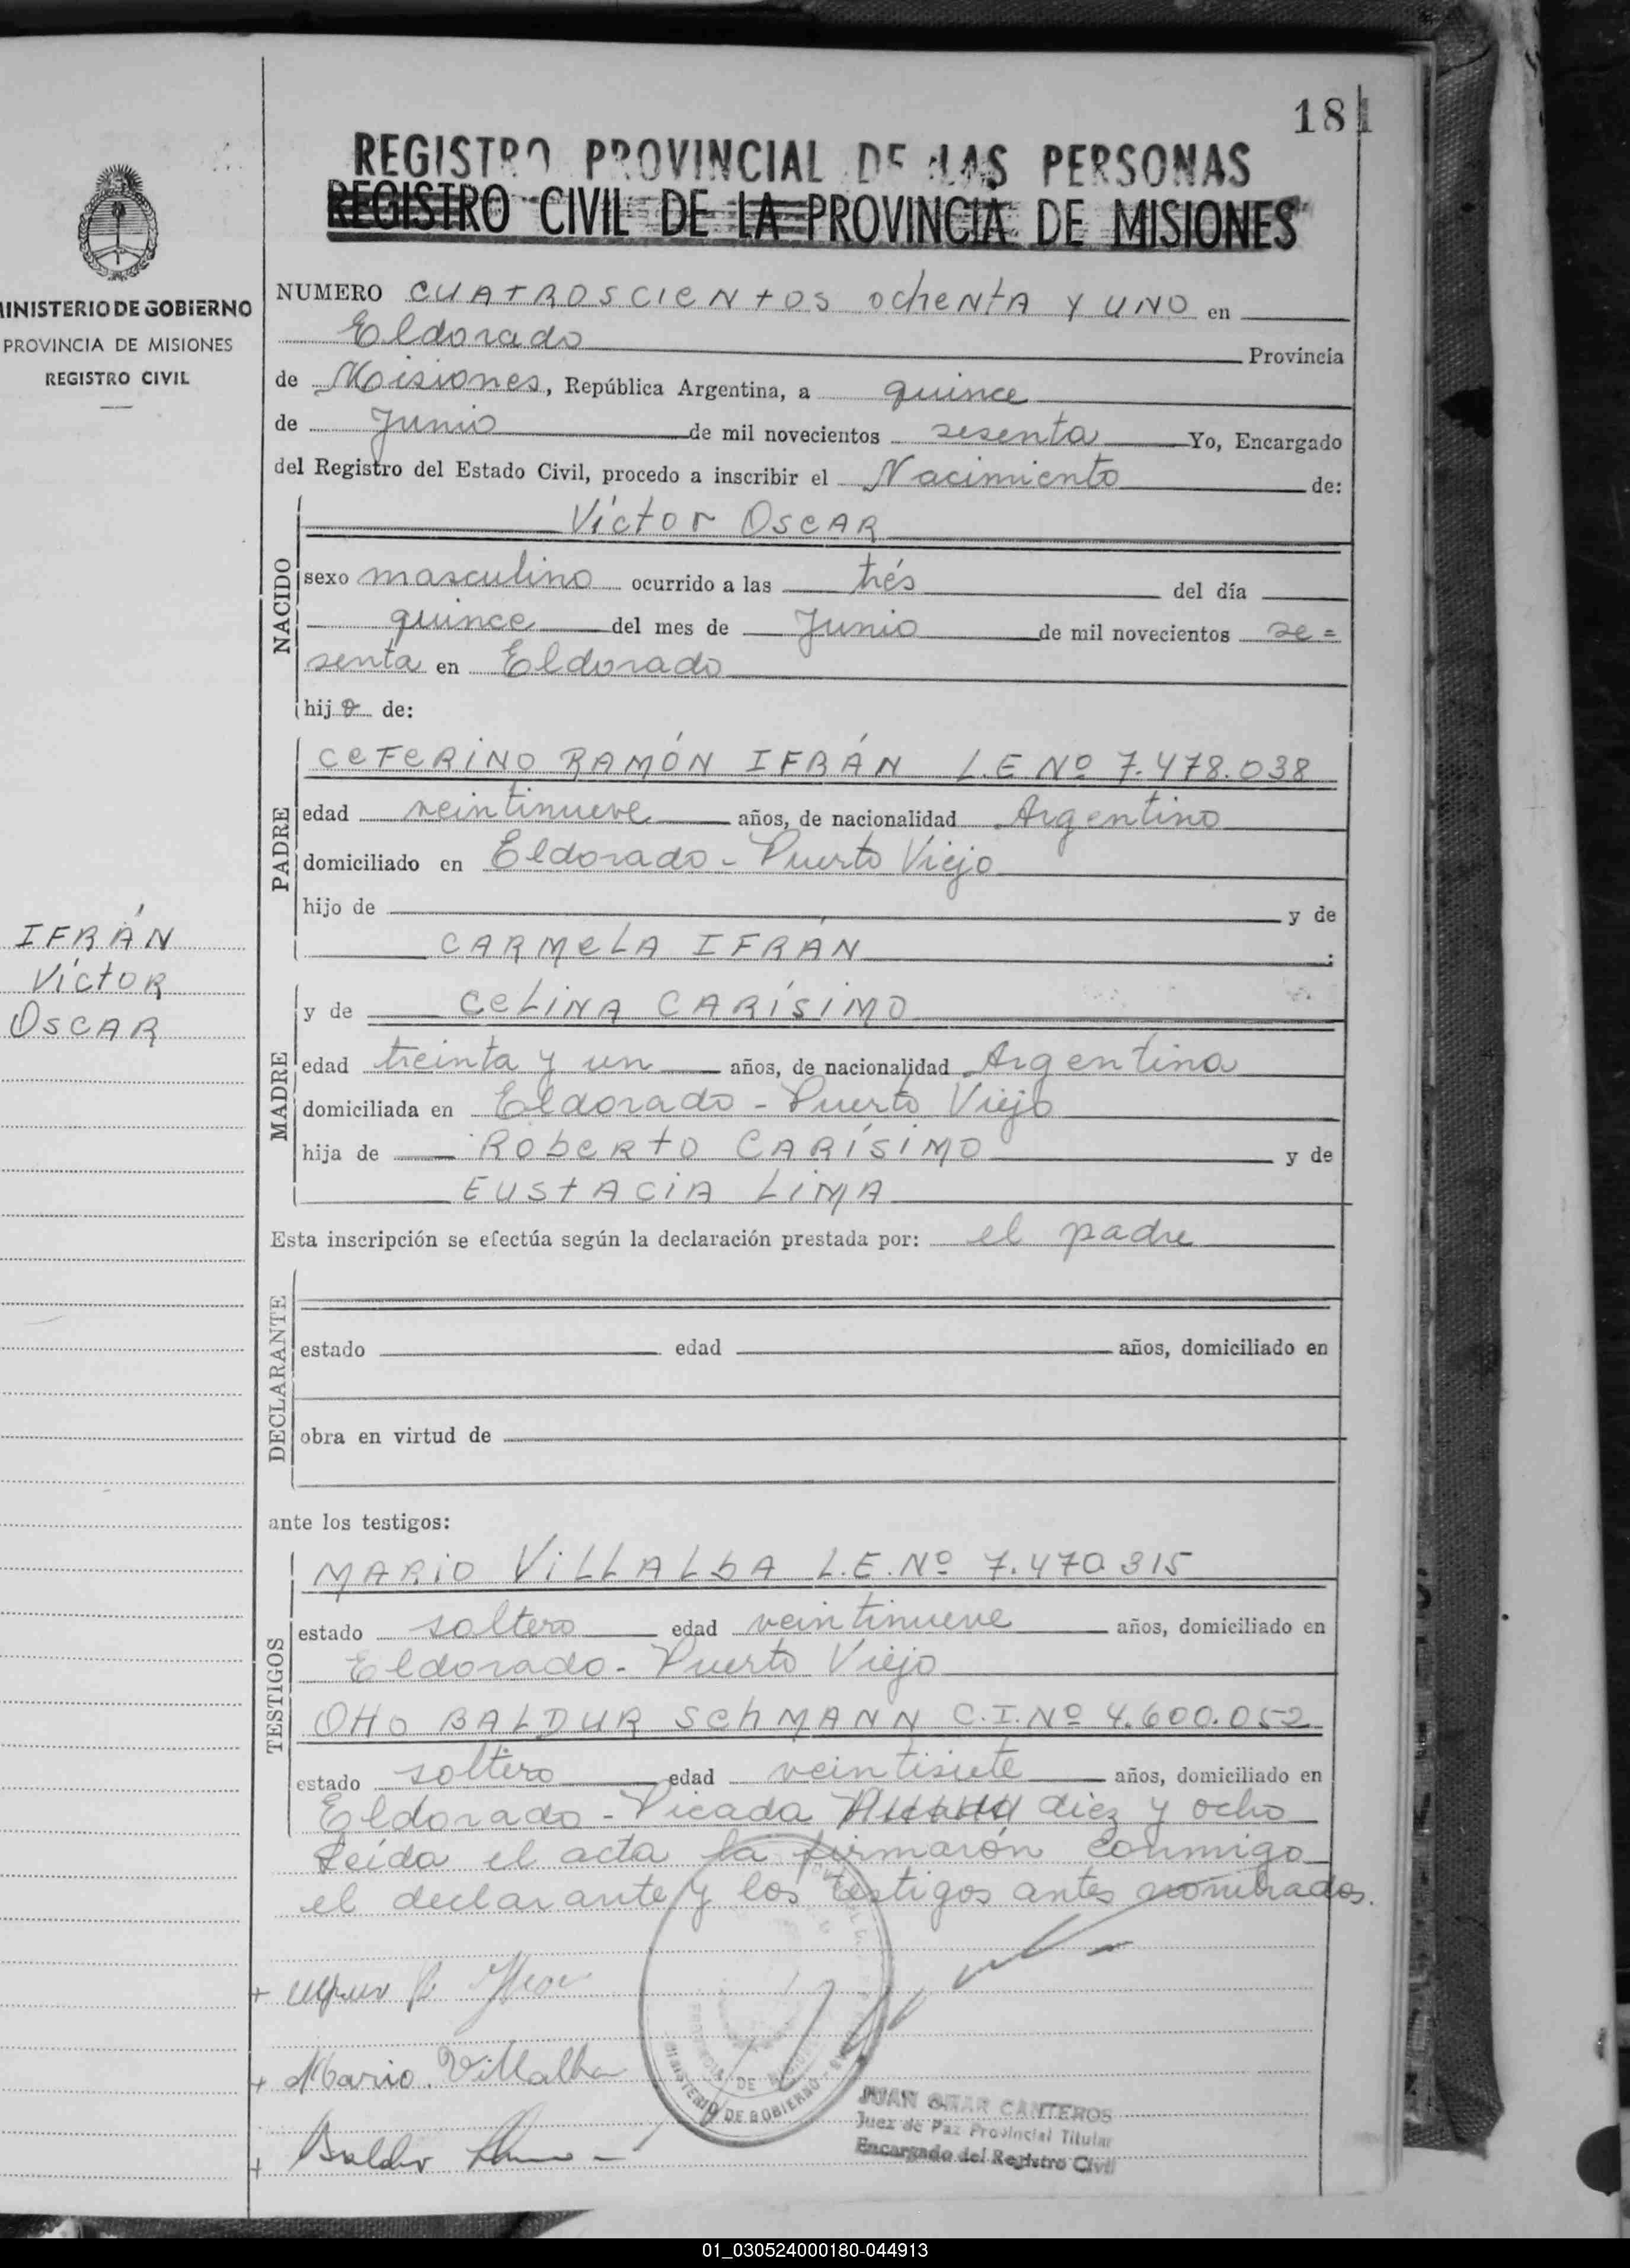 181
REGISTRO PROVINCIAL DE LAS PERSONAS
REGISTRO CIVIL DE LA PROVINCIA DE MISIONES
MINISTERIO DE GOBIERNO
PROVINCIA DE MISIONES
REGISTRO CIVIL
NUMERO CUATROSCIENTOS OCHENTA Y UNO en
Eldorado Provincia
de Misiones, República Argentina, a quince
de Junio de mil novecientos sesenta Yo, Encargado
del Registro del Estado Civil, procedo a inscribir el Nacimiento de:
NACIDO
Víctor OSCAR
sexo masculino ocurrido a las trés del día
quince del mes de Junio de mil novecientos se=
senta en Eldorado
hijo de:
PADRE
CEFERINO RAMÓN IFRÁN L.E Nº 7.478.038
edad veintinueve años, de nacionalidad Argentino
domiciliado en Eldorado - Puerto Viejo
hijo de y de
CARMELA IFRÁN ;
IFRÁN
Víctor
OSCAR
MADRE
y de CELINA CARÍSIMO
edad treinta y un años, de nacionalidad Argentina
domiciliada en Eldorado - Puerto Viejo
hija de ROBERTO CARÍSIMO y de
EUSTACIA LIMA
Esta inscripción se efectúa según la declaración prestada por: el padre
DECLARANTE
estado edad años, domiciliado en
obra en virtud de
ante los testigos:
TESTIGOS
MARIO VILLALBA L.E. Nº 7.470.315
estado soltero edad veintinueve años, domiciliado en
Eldorado - Puerto Viejo
OTTO BALDUR SCHMANN C.I. Nº 4.600.052
estado soltero edad veintisiete años, domiciliado en
Eldorado - Picada diez y ocho
Leída el acta la firmarón conmigo
el declarante y los testigos antes nombrados.
+
+ Mario Villalba
+ Baldur
MINISTERIO DE GOBIERNO
PROVINCIA DE
JUAN OMAR CANTEROS
Juez de Paz Provincial Titular
Encargado del Registro Civil
01_030524000180-044913